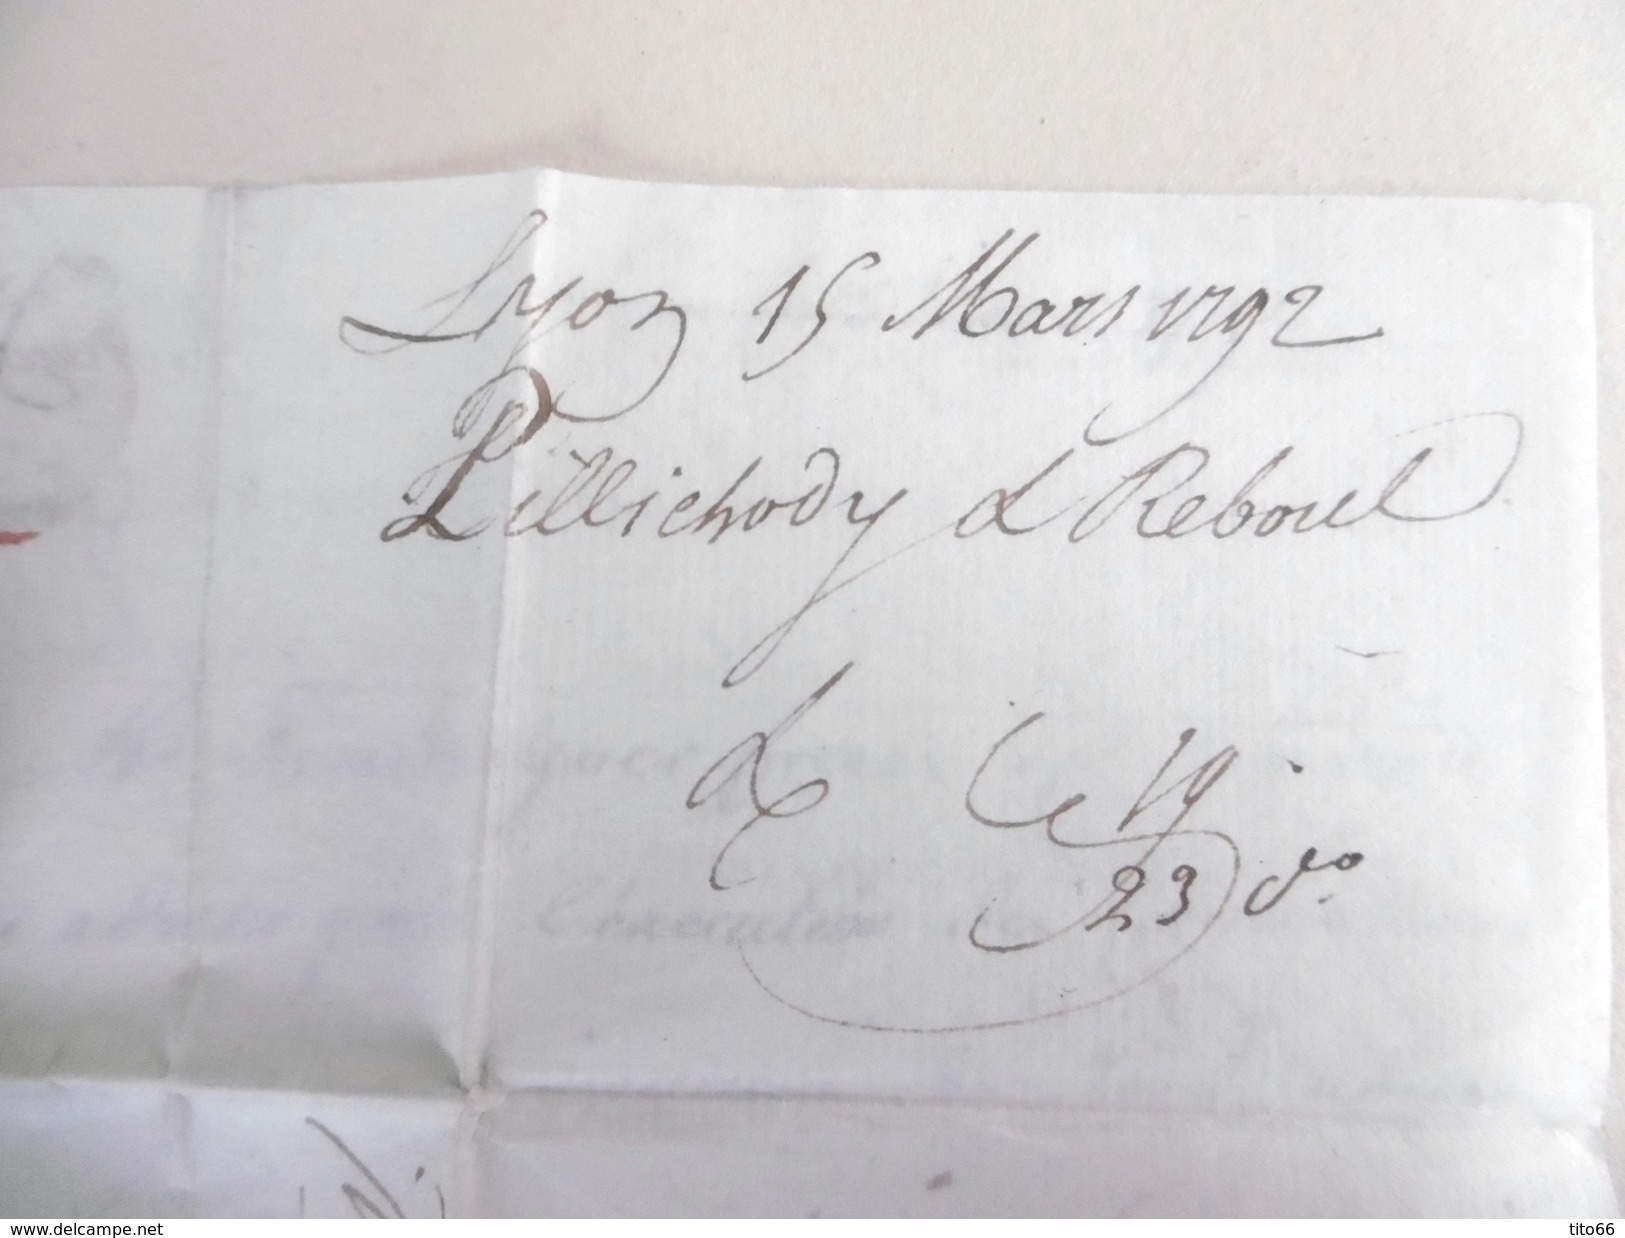 Lyon 15 Mars 1792
Pillichody & Reboul
R 19
R 23 do
www.delcampe.net
tito66